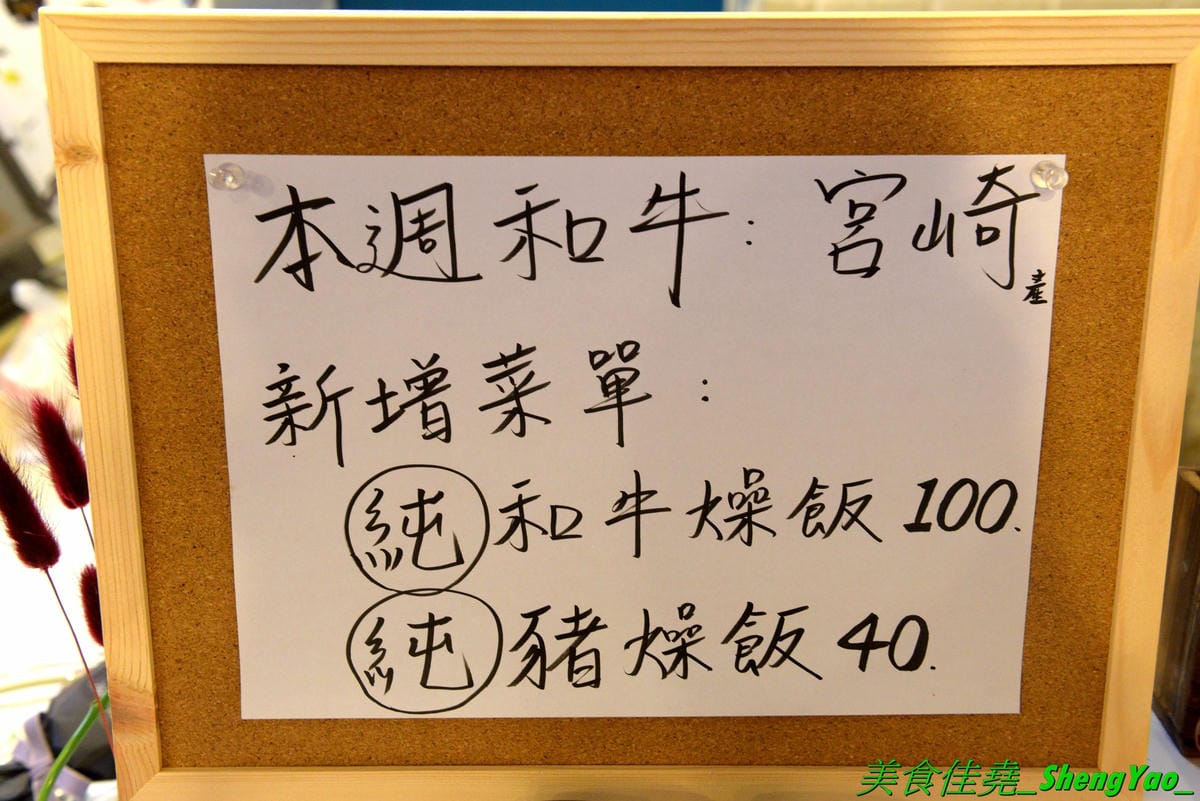 本週和牛：宮崎產
新增菜單：
純和牛燥飯 100.
純豬燥飯 40.
美食佳堯_ShengYao_